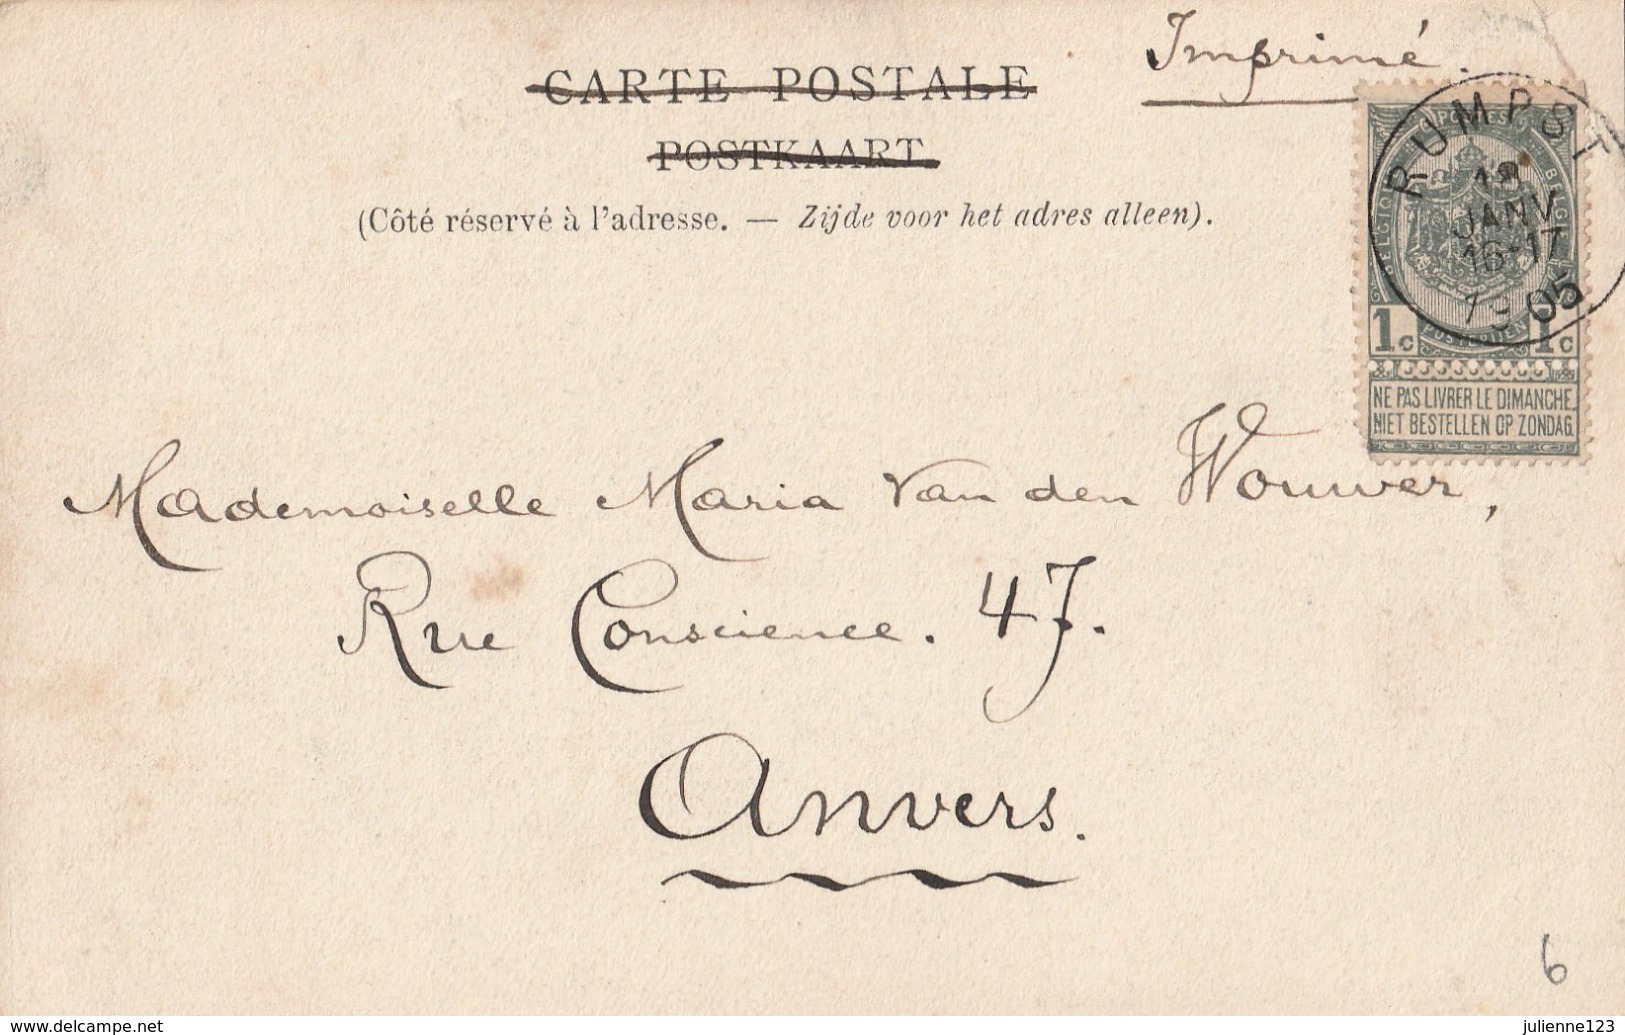 Imprimé.
CARTE POSTALE
POSTKAART
(Côté réservé à l'adresse. — Zijde voor het adres alleen).
RUMPST
18
JANV
16-17
1905
1c 1c
NE PAS LIVRER LE DIMANCHE.
NIET BESTELLEN OP ZONDAG
Mademoiselle Maria Van den Wouwer,
Rue Conscience. 47.
Anvers.
6
www.delcampe.net
julienne123